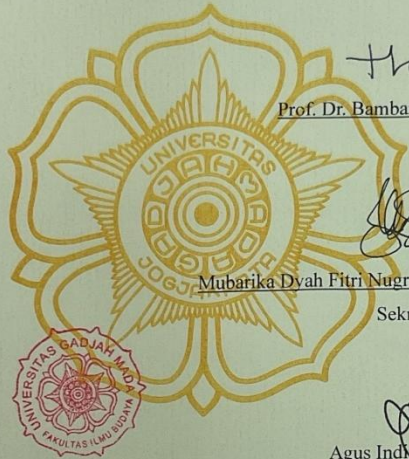 Prof. Dr. Bamba
UNIVERSITAS
GADJAH MADA
JOGJAKARTA
Mubarika Dyah Fitri Nugr
Sekr
UNIVERSITAS GADJAH MADA
FAKULTAS ILMU BUDAYA
Agus Ind